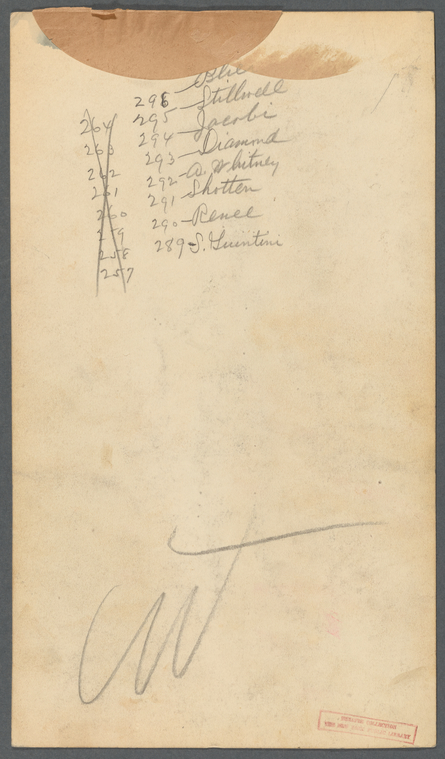 296 - Blie
295 - Stillwell
294 - Jacobi
293 - Diamond
292 - A. Whitney
291 - Shotten
290 - Renee
289 - S. Guintini
264
263
262
261
260
259
258
257